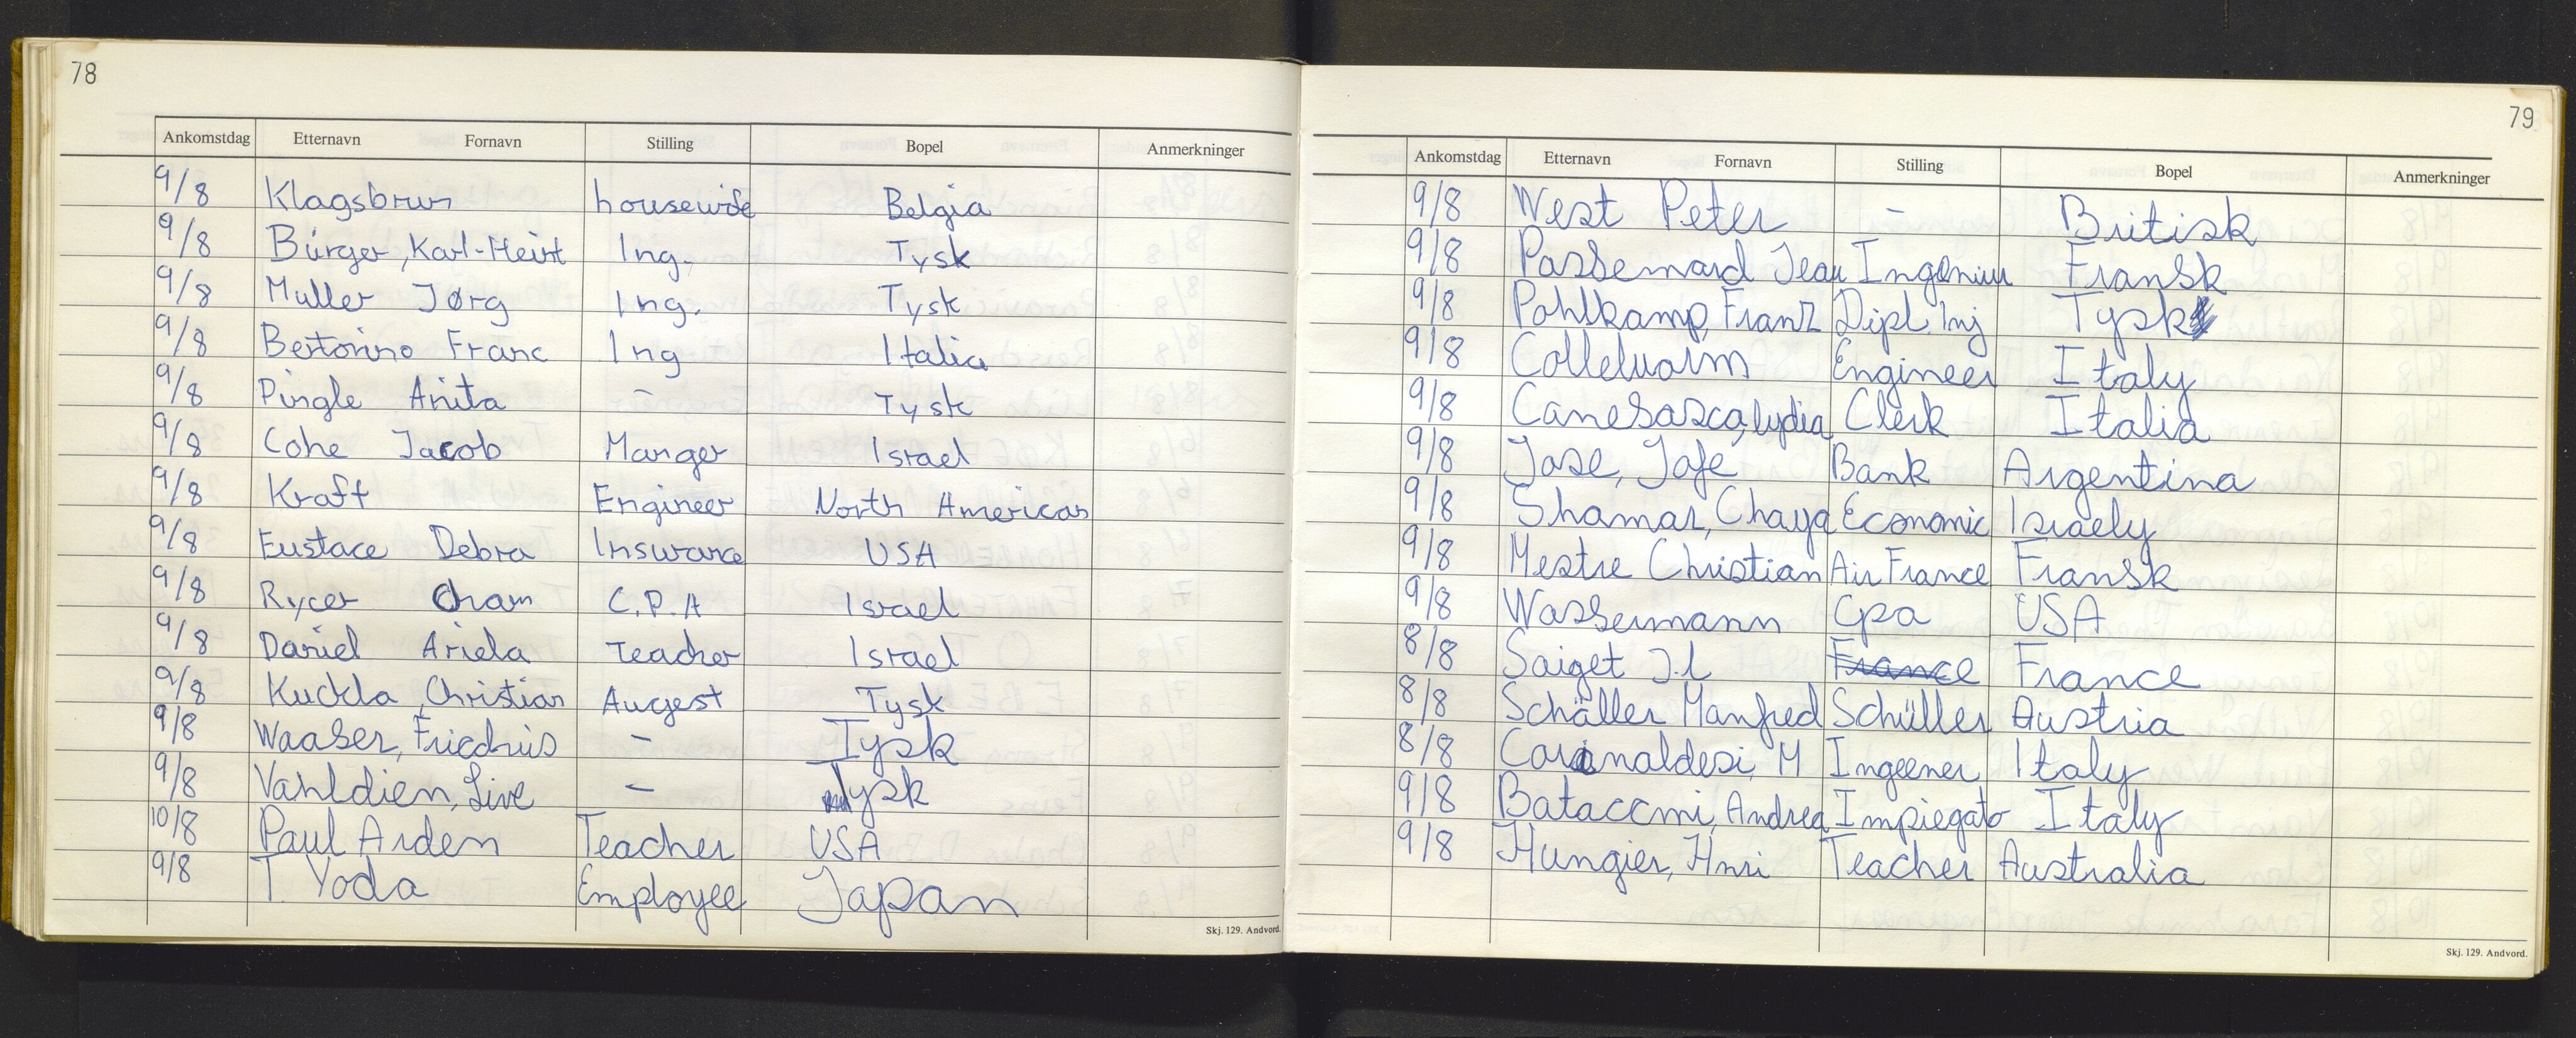 78
Ankomstdag Etternavn Fornavn Stilling Bopel Anmerkninger
9/8 Klagsbrun housewife Belgia
9/8 Bürger, Karl-Heint Ing. Tysk
9/8 Muller Jørg Ing. Tysk
9/8 Bertorino Franc Ing Italia
9/8 Pingle Anita - Tysk
9/8 Cohe Jacob Manger Israel
9/8 Kraft Engineer North American
9/8 Eustace Debra Insurance USA
9/8 Rycer Cham C.P.A Israel
9/8 Daniel Ariela Teacher Israel
9/8 Kuckla, Christian Augest Tysk
9/8 Waaser, Friedriis - Tysk
9/8 Vahldien, Live - Tysk
10/8 Paul Arden Teacher USA
9/8 T. Yoda Employee Japan
Skj. 129. Andvord.
79
Ankomstdag Etternavn Fornavn Stilling Bopel Anmerkninger
9/8 West Peter - Britisk
9/8 Passemard Jean Ingeniur Fransk
9/8 Pohlkamp, Franz Dipl. Inj Tysk
9/8 Engineer Italy
9/8 Canesasca, lydia Clerk Italia
9/8 Jose, Jofe Bank Argentina
9/8 Shamar, Chaya Economic Israely
9/8 Mestre Christian Air France Fransk
9/8 Wassermann Cpa USA
8/8 Saiget J.l France France
8/8 Schäller Manfred Schüller Austria
8/8 Carinaldesi, M Ingeener Italy
9/8 Bataccmi, Andrea Impiegato Italy
9/8 Hungier, Hnri Teacher Australia
Skj. 129. Andvord.